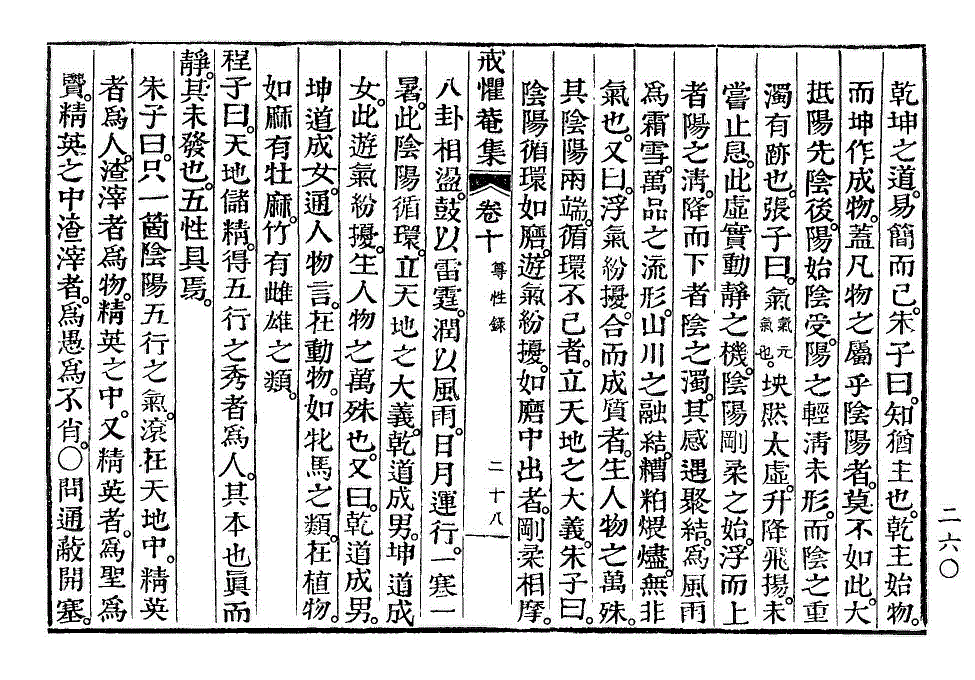 乾坤之道。易簡而已。朱子曰。知猶主也。乾主始物。
而坤作成物。蓋凡物之屬乎陰陽者。莫不如此。大
抵陽先陰後。陽始陰受。陽之輕淸未形。而陰之重
濁有跡也。張子曰。氣氣元氣也。坱然太虛。升降飛揚。未
嘗止息。此虛實動靜之機。陰陽剛柔之始。浮而上
者陽之淸。降而下者陰之濁。其感遇聚結。爲風雨
爲霜雪。萬品之流形。山川之融結。糟粕煨燼。無非
氣也。又曰。浮氣紛擾。合而成質者。生人物之萬殊。
其陰陽兩端。循環不已者。立天地之大義。朱子曰。
陰陽循環如磨。遊氣紛擾。如磨中出者。剛柔相摩。
戒懼菴集 卷十 尊性錄 二十八
八卦相盪。鼓以雷霆。潤以風雨。日月運行。一寒一
暑。此陰陽循環。立天地之大義。乾道成男。坤道成
女。此遊氣紛擾。生人物之萬殊也。又曰。乾道成男。
坤道成女。通人物言。在動物。如牝馬之類。在植物。
如麻有牡麻。竹有雌雄之類。
程子曰。天地儲精。得五行之秀者爲人。其本也眞而
靜。其未發也。五性具焉。
朱子曰。只一箇陰陽五行之氣。滾在天地中。精英
者爲人。渣滓者爲物。精英之中。又精英者。爲聖爲
賢。精英之中渣滓者。爲愚爲不肖。○問通蔽開塞。
二六〇